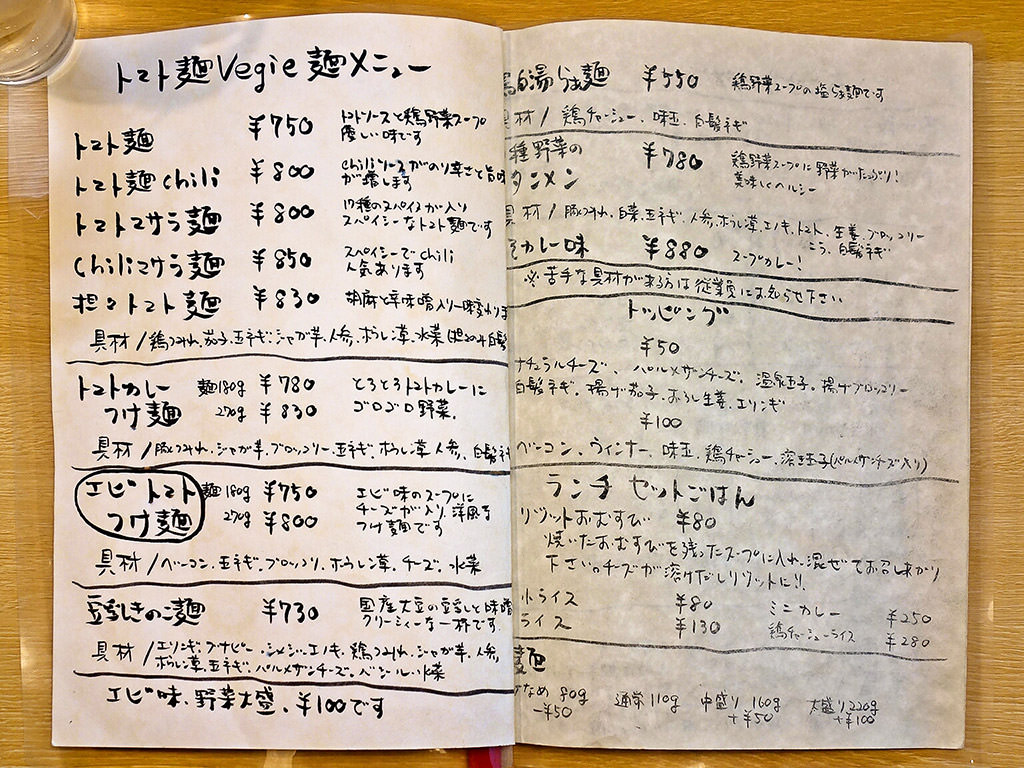 トマト麺 Vegie 麺メニュー
トマト麺 ¥750 トマトソースと鶏野菜スープ
優しい味です
トマト麺 chili ¥800 chiliソースがのり辛さと旨味
が増します
トマトマサラ麺 ¥800 17種のスパイスが入り
スパイシーなトマト麺です
chiliマサラ麺 ¥850 スパイシーで chili
人気あります
担々トマト麺 ¥830 胡麻と辛味噌入り一味変わりま
具材/鶏つみれ、茄子、玉ネギ、ジャガ芋、人参、ホウレン草、水菜
トマトカレー 麺180g ¥780 とろとろトマトカレーに
つけ麺 270g ¥830 ゴロゴロ野菜。
具材/豚つみれ、ジャガ芋、ブロッコリー、玉ネギ、ホウレン草、人参、白髪ネギ
エビトマト 麺180g ¥750 エビ味のスープに
つけ麺 270g ¥800 チーズが入り、洋風な
つけ麺です
具材/ベーコン、玉ネギ、ブロッコリ、ホウレン草、チーズ、水菜
豆乳きのこ麺 ¥730 国産大豆の豆乳と味噌
クリーミィーな一杯です
具材/エリンギ、ブナピー、シメジ、エノキ、鶏つみれ、ジャガ芋、人参、
ホウレン草、玉ネギ、パルメザンチーズ、バジル、水菜
エビ味、野菜大盛、¥100です
白湯らぁ麺 ¥550 鶏野菜スープの塩らぁ麺です
具材/鶏チャーシュー、味玉、白髪ネギ
種野菜の ¥780 鶏野菜スープに野菜がたっぷり!
タンメン 美味しくヘルシー
具材/豚つみれ、白菜、玉ネギ、人参、ホウレン草、エノキ、トマト、生姜、ブロッコリー
白髪ネギ
カレー味 ¥880 スープカレー!
※苦手な具材がある方は従業員にお知らせ下さい
トッピング
¥50
ナチュラルチーズ、パルメザンチーズ、温泉玉子、揚げブロッコリー
白髪ネギ、揚げ茄子、おろし生姜、エリンギ
¥100
ベーコン、ウィンナー、味玉、鶏チャーシュー、溶き玉子(パルメザンチーズ入り)
ランチ セットごはん
リゾットおむすび ¥80
焼いたおむすびを残ったスープに入れ、混ぜてお召し上がり
下さい。チーズが溶けだしリゾットに!!
小ライス ¥80 ミニカレー ¥250
ライス ¥130 鶏チャーシューライス ¥280
麺
少なめ 80g 通常 110g 中盛り 160g 大盛り 220g
-¥50 +¥50 +¥100